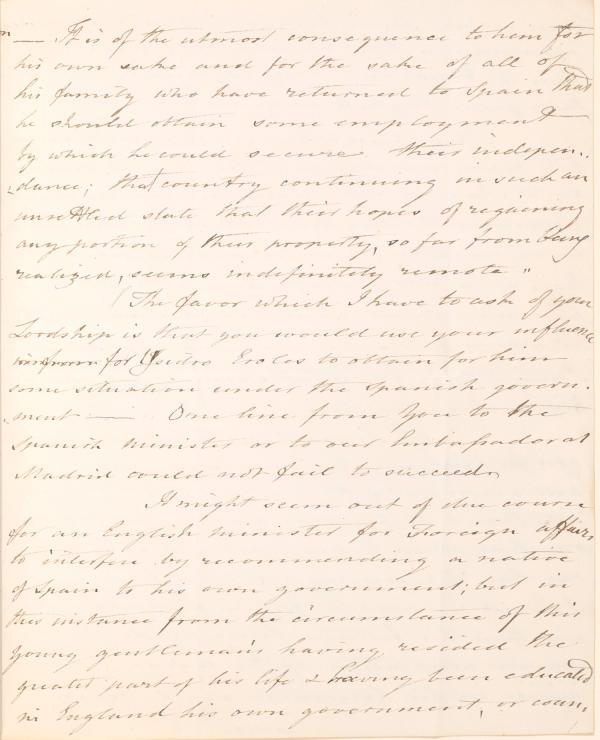 — It is of the utmost consequence to him for
his own sake and for the sake of all of
his family who have returned to Spain that
he should obtain some employment
by which he could secure their indepen-
-dance; that country continuing in such an
unsettled state that their hopes of regaining
any portion of their property, so far from being
realized, seems indefinitely remote "
The favor which I have to ask of your
Lordship is that you would use your influence
for Ysidro Eroles to obtain for him
some situation under the spanish govern-
-ment — One line from You to the
spanish minister or to our Embassador at
Madrid could not fail to succeed
It might seem out of due course
for an English minister for Foreign affairs
to interfere by recommending a native
of Spain to his own government; but in
this instance from the circumstance of this
young gentleman's having resided the
greater part of his life & having been educated
in England his own government, or coun-